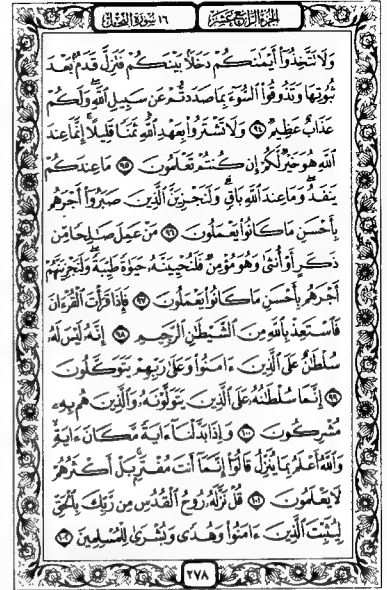 الجزء الرابع عشر ١٦ سورة النحل
وَلَا تَتَّخِذُوٓا۟ أَيْمَٰنَكُمْ دَخَلًۢا بَيْنَكُمْ فَتَزِلَّ قَدَمٌۢ بَعْدَ
ثُبُوتِهَا وَتَذُوقُوا۟ ٱلسُّوٓءَ بِمَا صَدَدتُّمْ عَن سَبِيلِ ٱللَّهِ وَلَكُمْ
عَذَابٌ عَظِيمٌ ٩٤ وَلَا تَشْتَرُوا۟ بِعَهْدِ ٱللَّهِ ثَمَنًا قَلِيلًا إِنَّمَا عِندَ
ٱللَّهِ هُوَ خَيْرٌ لَّكُمْ إِن كُنتُمْ تَعْلَمُونَ ٩٥ مَا عِندَكُمْ
يَنفَدُ وَمَا عِندَ ٱللَّهِ بَاقٍ وَلَنَجْزِيَنَّ ٱلَّذِينَ صَبَرُوٓا۟ أَجْرَهُم
بِأَحْسَنِ مَا كَانُوا۟ يَعْمَلُونَ ٩٦ مَنْ عَمِلَ صَٰلِحًا مِّن
ذَكَرٍ أَوْ أُنثَىٰ وَهُوَ مُؤْمِنٌ فَلَنُحْيِيَنَّهُۥ حَيَوٰةً طَيِّبَةً وَلَنَجْزِيَنَّهُمْ
أَجْرَهُم بِأَحْسَنِ مَا كَانُوا۟ يَعْمَلُونَ ٩٧ فَإِذَا قَرَأْتَ ٱلْقُرْءَانَ
فَٱسْتَعِذْ بِٱللَّهِ مِنَ ٱلشَّيْطَٰنِ ٱلرَّجِيمِ ٩٨ إِنَّهُۥ لَيْسَ لَهُۥ
سُلْطَٰنٌ عَلَى ٱلَّذِينَ ءَامَنُوا۟ وَعَلَىٰ رَبِّهِمْ يَتَوَكَّلُونَ
٩٩ إِنَّمَا سُلْطَٰنُهُۥ عَلَى ٱلَّذِينَ يَتَوَلَّوْنَهُۥ وَٱلَّذِينَ هُم بِهِۦ
مُشْرِكُونَ ١٠٠ وَإِذَا بَدَّلْنَآ ءَايَةً مَّكَانَ ءَايَةٍ
وَٱللَّهُ أَعْلَمُ بِمَا يُنَزِّلُ قَالُوٓا۟ إِنَّمَآ أَنتَ مُفْتَرٍۭ بَلْ أَكْثَرُهُمْ
لَا يَعْلَمُونَ ١٠١ قُلْ نَزَّلَهُۥ رُوحُ ٱلْقُدُسِ مِن رَّبِّكَ بِٱلْحَقِّ
لِيُثَبِّتَ ٱلَّذِينَ ءَامَنُوا۟ وَهُدًى وَبُشْرَىٰ لِلْمُسْلِمِينَ ١٠٢
٢٧٨